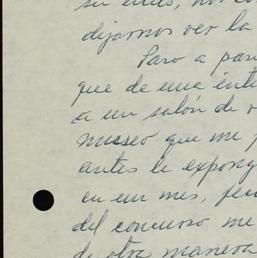 dijarnos ver la
Paso a
que de una
a un salón de
museo que me
antes le expong
en un mes,
del concurso me
de otra manera